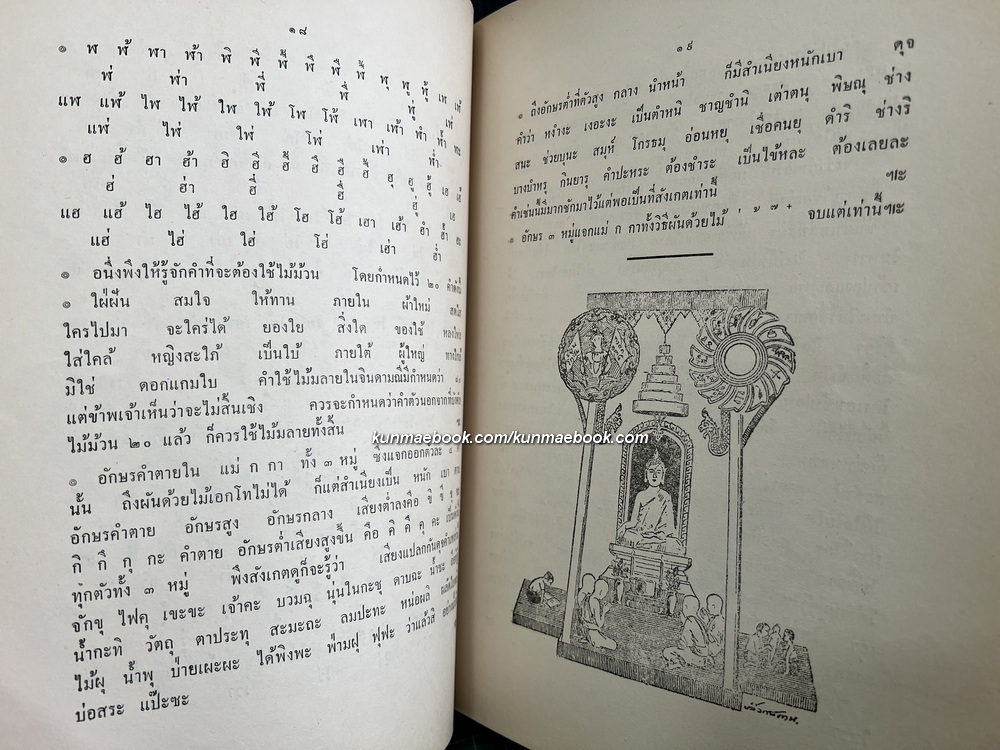 ๑๘
๏ พ พ้ พา พ้า พิ พี พี้ พึ พื พื้ พุ พู พู้ เพ เพ้
พ่ พ่า พี่ พื่ พู่ เพ่
แพ แพ้ ไพ ไพ้ ใพ ใพ้ โพ โพ้ เพา เพ้า พำ พ้ำ พะ
แพ่ ไพ่ ใพ่ โพ่ เพ่า พ่ำ
๏ ฮ ฮ้ ฮา ฮ้า ฮิ ฮี ฮี้ ฮึ ฮื ฮื้ ฮุ ฮู ฮู้ เฮ เฮ้
ฮ่ ฮ่า ฮี่ ฮื่ ฮู่ เฮ
แฮ แฮ้ ไฮ ไฮ้ ใฮ ใฮ้ โฮ โฮ้ เฮา เฮ้า ฮำ ฮ้ำ ฮะ
แฮ่ ไฮ่ ใฮ่ โฮ่ เฮ่า ฮ่ำ
๏ อนึ่งพึงให้รู้จักคำที่จะต้องใช้ไม้ม้วน โดยกำหนดไว้ ๒๐ คำ
๏ ใฝ่ฝัน สมใจ ให้ทาน ภายใน ผ้าใหม่
ใครไปมา จะใคร่ได้ ยองใย สิ่งใด ของใช้
ใส่ใคล้ หญิงสะใภ้ เป็นใบ้ ภายใต้ ผู้ใหญ่
มิใช่ ดอกแกมใบ คำใช้ไม้มลายในจินดามณีมีกำหนดว่า
แต่ข้าพเจ้าเห็นว่าจะไม่สิ้นเชิง ควรจะกำหนดว่าคำตัวนอกจากที่
ไม้ม้วน ๒๐ แล้ว ก็ควรใช้ไม้มลายทั้งสิ้น
๏ อักษรคำตายใน แม่ ก กา ทั้ง ๓ หมู่ ซึ่งแจกออกตัวละ ๔
นั้น ถึงผันด้วยไม้เอกโทไม่ได้ ก็แต่สำเนียงเป็น หนัก เบา
อักษรคำตาย อักษรสูง อักษรกลาง เสียงต่ำลงคือ ขิ ขึ ขุ ขะ
กิ กึ กุ กะ คำตาย อักษรต่ำเสียงสูงขึ้น คือ คิ คึ คุ คะ
ทุกตัวทั้ง ๓ หมู่ พึงสังเกตดูก็จะรู้ว่า เสียงแปลกกันดุจคำ
จักขุ ไฟคุ เขะขะ เจ้าคะ บวมฉุ นุ่นในกะชุ ดาบฉะ น้ำชะ
น้ำกะทิ วัตถุ ตาประทุ สะมะถะ ลมปะทะ หน่อผลิ
ไม้ผุ น้ำพุ ป่ายเผะผะ ได้พิงพะ ฟ่ามฝุ ฟุฟะ ว่าแล้วสิ
บ่อสระ แป๊ะซะ
๑๙
๏ ถึงอักษรต่ำที่ตัวสูง กลาง นำหน้า ก็มีสำเนียงหนักเบา ดุจ
คำว่า หงำงะ เงอะงะ เป็นตำหนิ ชาญชำนิ เต่าตนุ พิษณุ ช่าง
สนะ ช่วยบุนะ สมุห์ โกรธมุ อ่อนหยุ เชื่อคนยุ ดำริ ช่างริ
บางบำหรุ กินยารุ คำปะหระ ต้องชำระ เป็นไข้หละ ต้องเลยละ
คำเช่นนี้มีมากชักมาไว้แต่พอเป็นที่สังเกตเท่านี้ ฯะ
๏ อักษร ๓ หมู่แจกแม่ ก กาทั้งวิธีผันด้วยไม้ ่ ้ ๊ ๋ จบแต่เท่านี้ฯะ
kunmaebook.com/kunmaebook.com